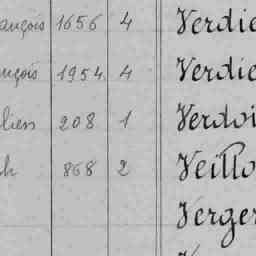 ançois 1656 4 Verdie
nçois 1954. 4 Verdie
lien 208 1 Verdoi
h 868 2 Veillo
Verger